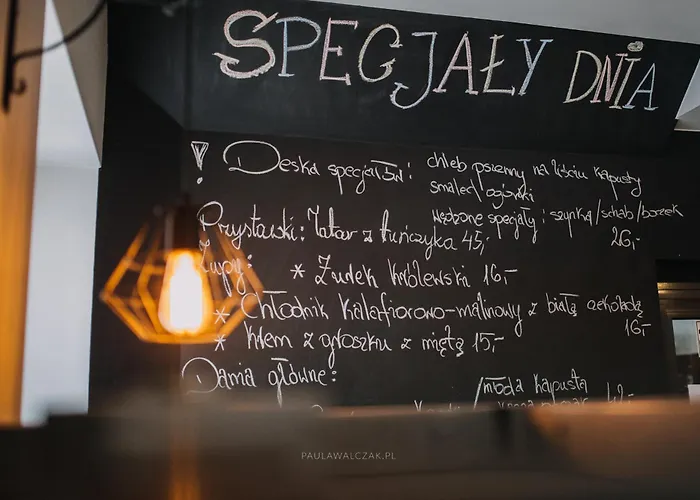 SPECJAŁY DNIA
! Deska specjałów: chleb pszenny na liściu kapusty
smalec ogórki
wędzone specjały: szynka/schab/boczek
26,-
Przystawki: Tatar z tuńczyka 45,-
Zupy: * Żurek królewski 16,-
* Chłodnik kalafiorowo-malinowy z białą czekoladą
16,-
* krem z groszku z miętą 15,-
Dania główne:
/młoda kapusta
PAULAWALCZAK.PL